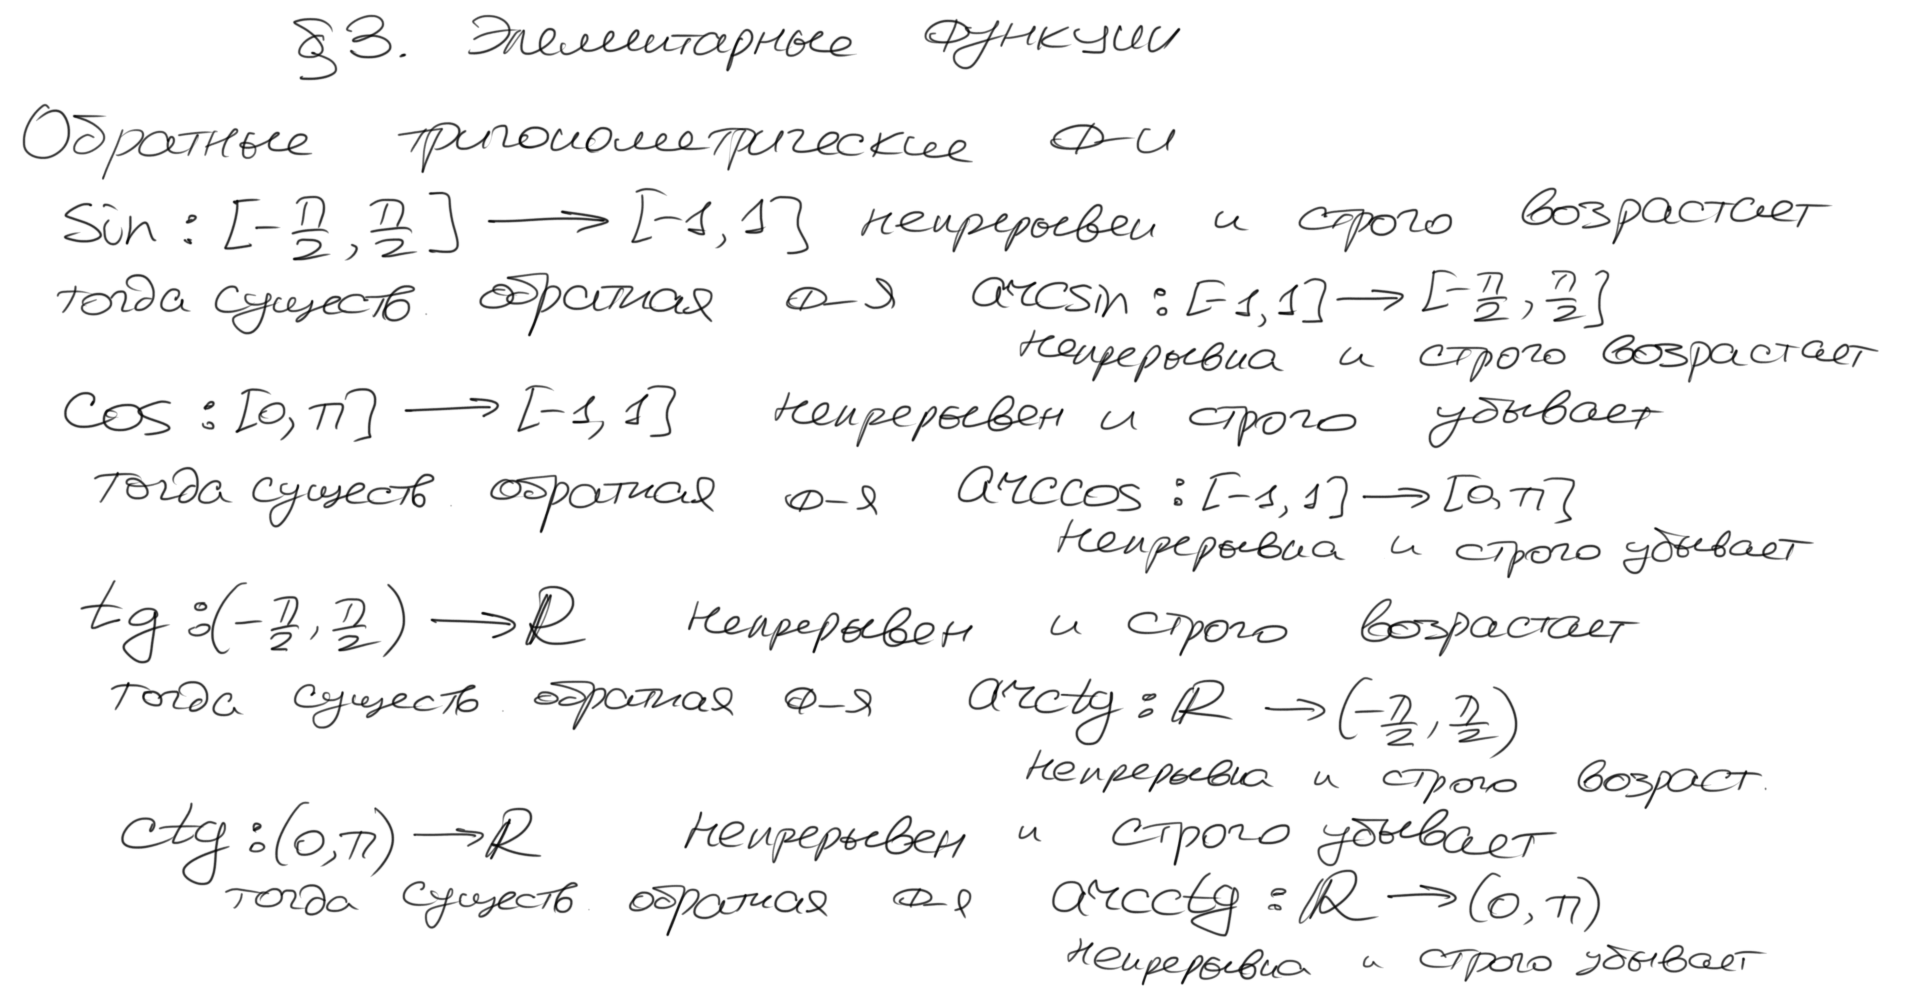 §3. Элементарные функции
Обратные тригонометрические ф-и
sin : [-π/2, π/2] → [-1, 1] непрерывен и строго возрастает
тогда существ. обратная ф-я arcsin : [-1, 1] → [-π/2, π/2]
непрерывна и строго возрастает
cos : [0, π] → [-1, 1] непрерывен и строго убывает
тогда существ. обратная ф-я arccos : [-1, 1] → [0, π]
непрерывна и строго убывает
tg : (-π/2, π/2) → ℝ непрерывен и строго возрастает
тогда существ. обратная ф-я arctg : ℝ → (-π/2, π/2)
непрерывна и строго возраст.
ctg : (0, π) → ℝ непрерывен и строго убывает
тогда существ. обратная ф-я arcctg : ℝ → (0, π)
непрерывна и строго убывает